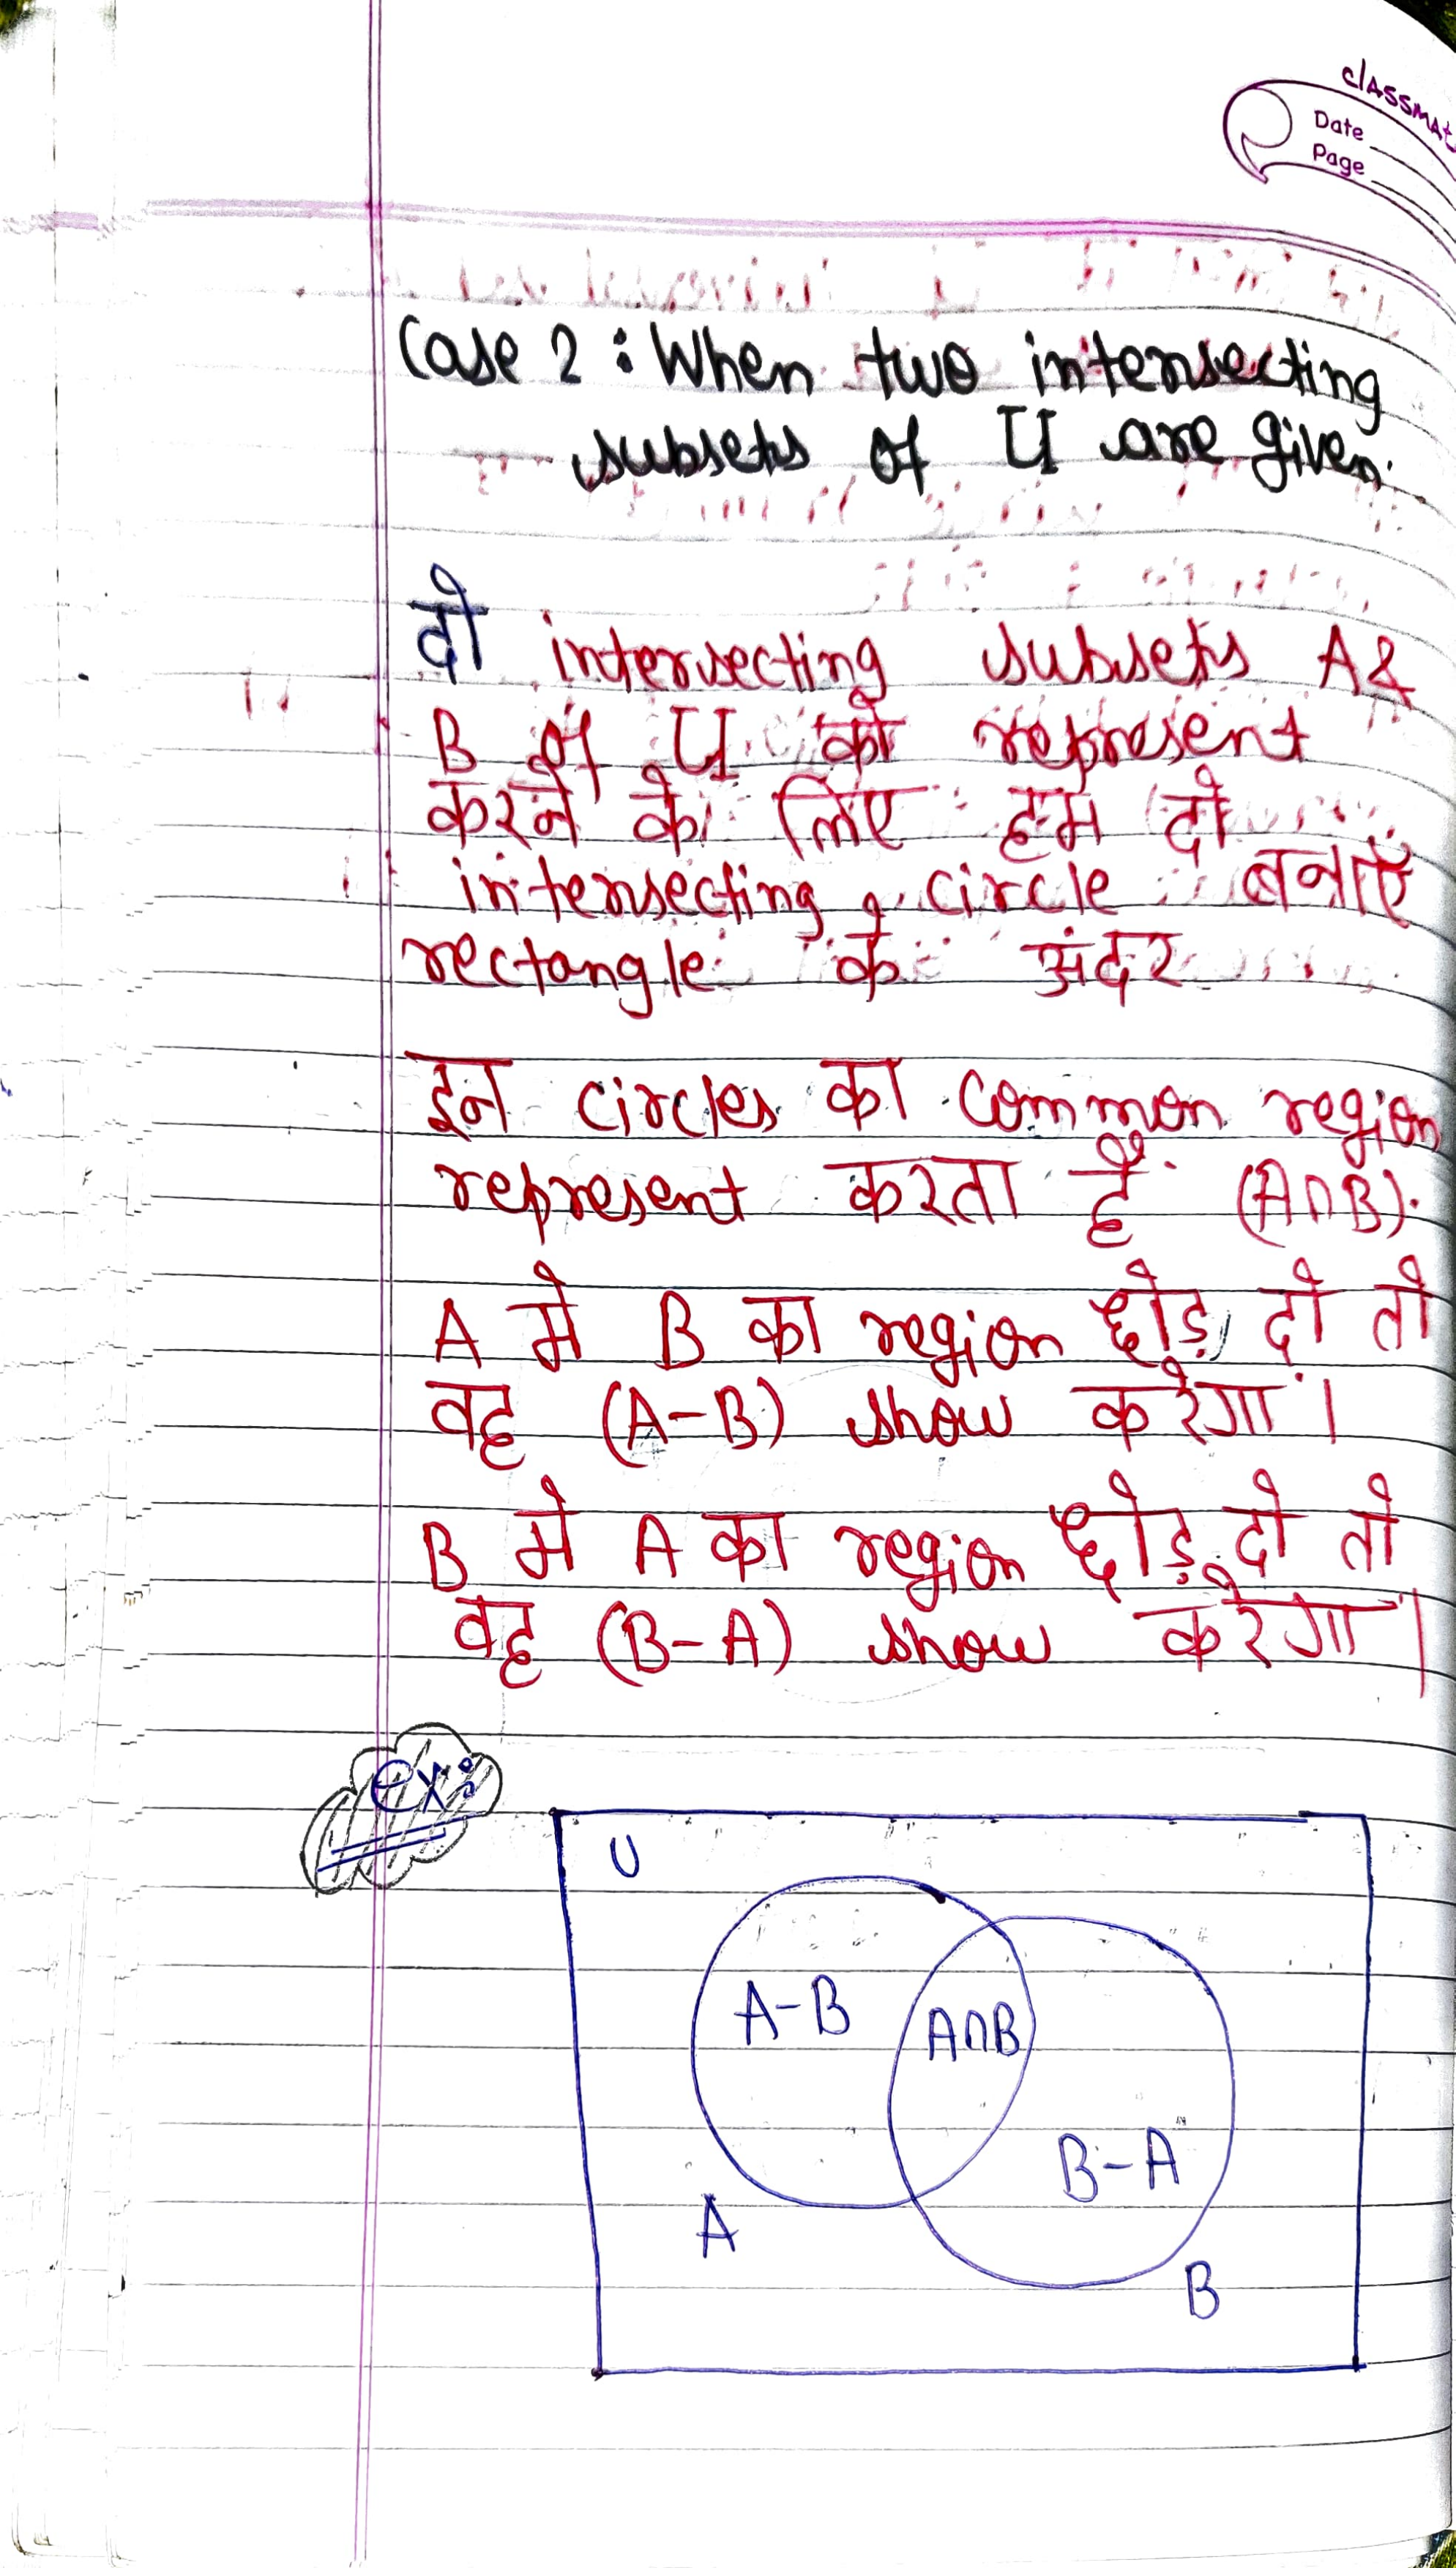 classmate
Date
Page
Case 2 : When two intersecting
subsets of U are given.
दो intersecting subsets A &
B of U को represent
करने के लिए हम दो
intersecting circle बनाएं
rectangle के अंदर
इन circles का common region
represent करता है (A∩B).
A मे B का region छोड़ दो तो
वह (A-B) show करेगा।
B मे A का region छोड़ दो तो
वह (B-A) show करेगा।
ex:
U
A-B
A∩B
B-A
A
B